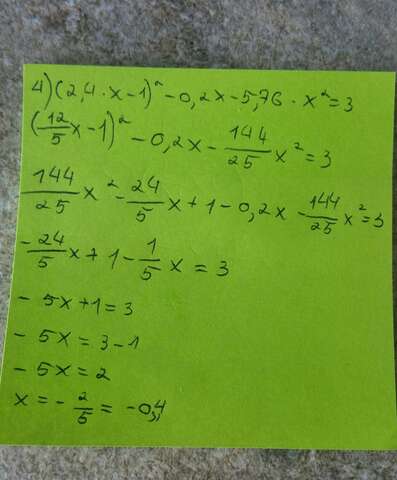 4) (2,4 · x - 1)² - 0,2x - 5,76 · x² = 3
(12/5 x - 1)² - 0,2x - 144/25 x² = 3
144/25 x² - 24/5 x + 1 - 0,2x - 144/25 x² = 3
- 24/5 x + 1 - 1/5 x = 3
- 5x + 1 = 3
- 5x = 3 - 1
- 5x = 2
x = - 2/5 = -0,4